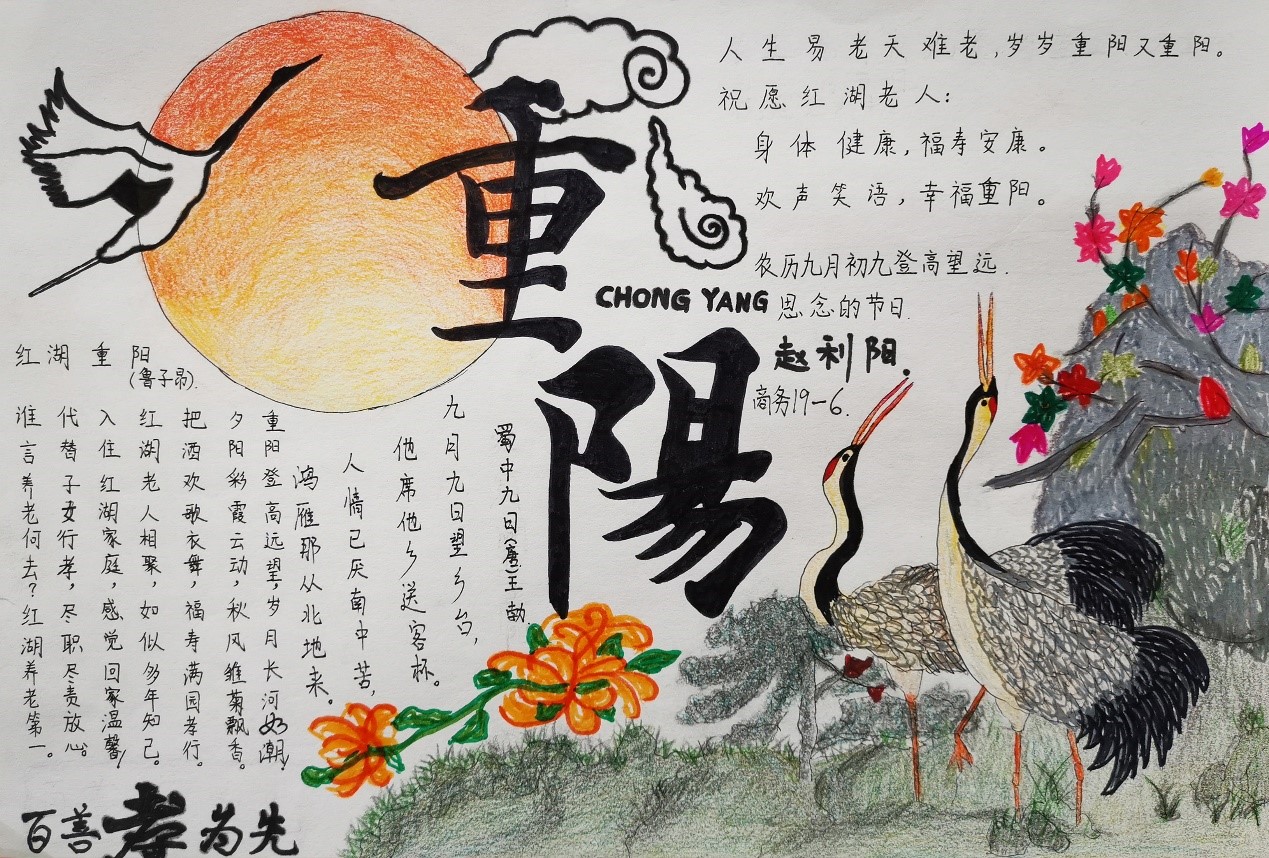 人生易老天难老,岁岁重阳又重阳。
祝愿红湖老人:
身体健康,福寿安康。
欢声笑语,幸福重阳。
农历九月初九登高望远.
思念的节日.
重陽
CHONG YANG
赵利阳.
商务19-6.
蜀中九日(唐)王勃
九月九日望乡台,
他席他乡送客杯。
人情已厌南中苦,
鸿雁那从北地来。
红湖 重阳
(鲁子昂).
重阳登高远望,岁月长河如潮,
夕阳彩霞云动,秋风维菊飘香。
把洒欢歌衣舞,福寿满园孝行。
红湖老人相聚,如似多年知己。
入住红湖家庭,感觉回家温馨,
代替子女行孝,尽职尽责放心。
谁言养老何去?红湖养老第一。
百善孝为先